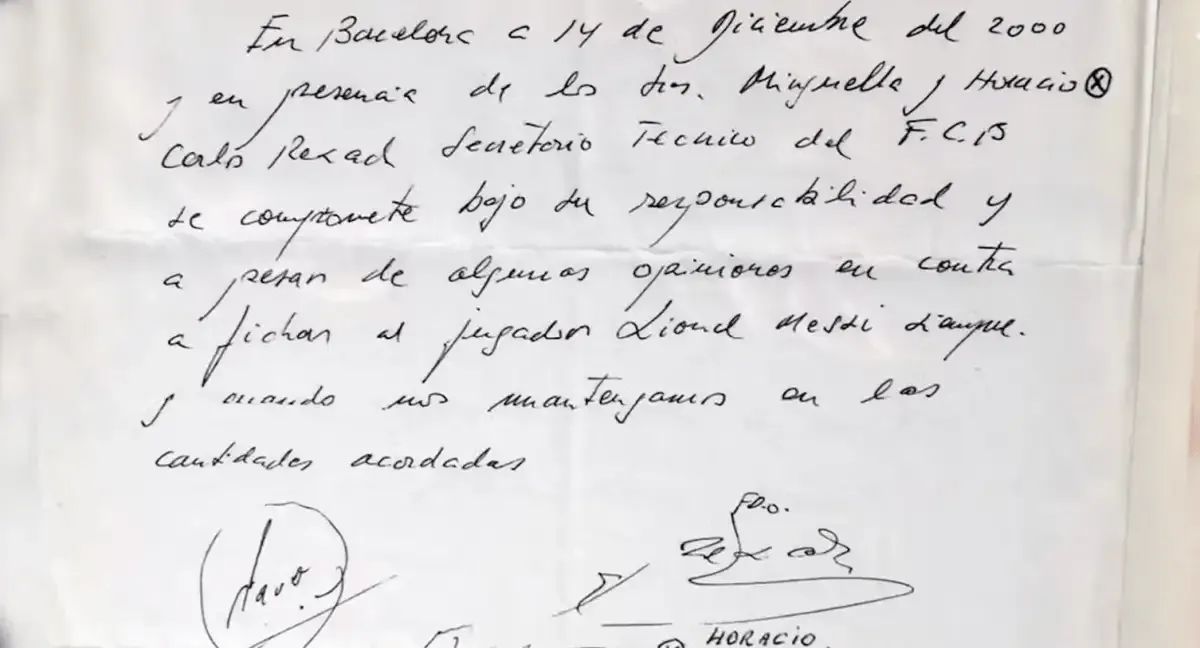 En Barcelona a 14 de Diciembre del 2000
y en presencia de los Srs. Minguella y Horacio ⓧ
Carlos Rexach Secretario Tecnico del F.C.B
se compromete bajo su responsabilidad y
a pesar de algunas opiniones en contra
a fichar al jugador Lionel Messi siempre.
y cuando nos mantengamos en las
cantidades acordadas
FDO.
HORACIO